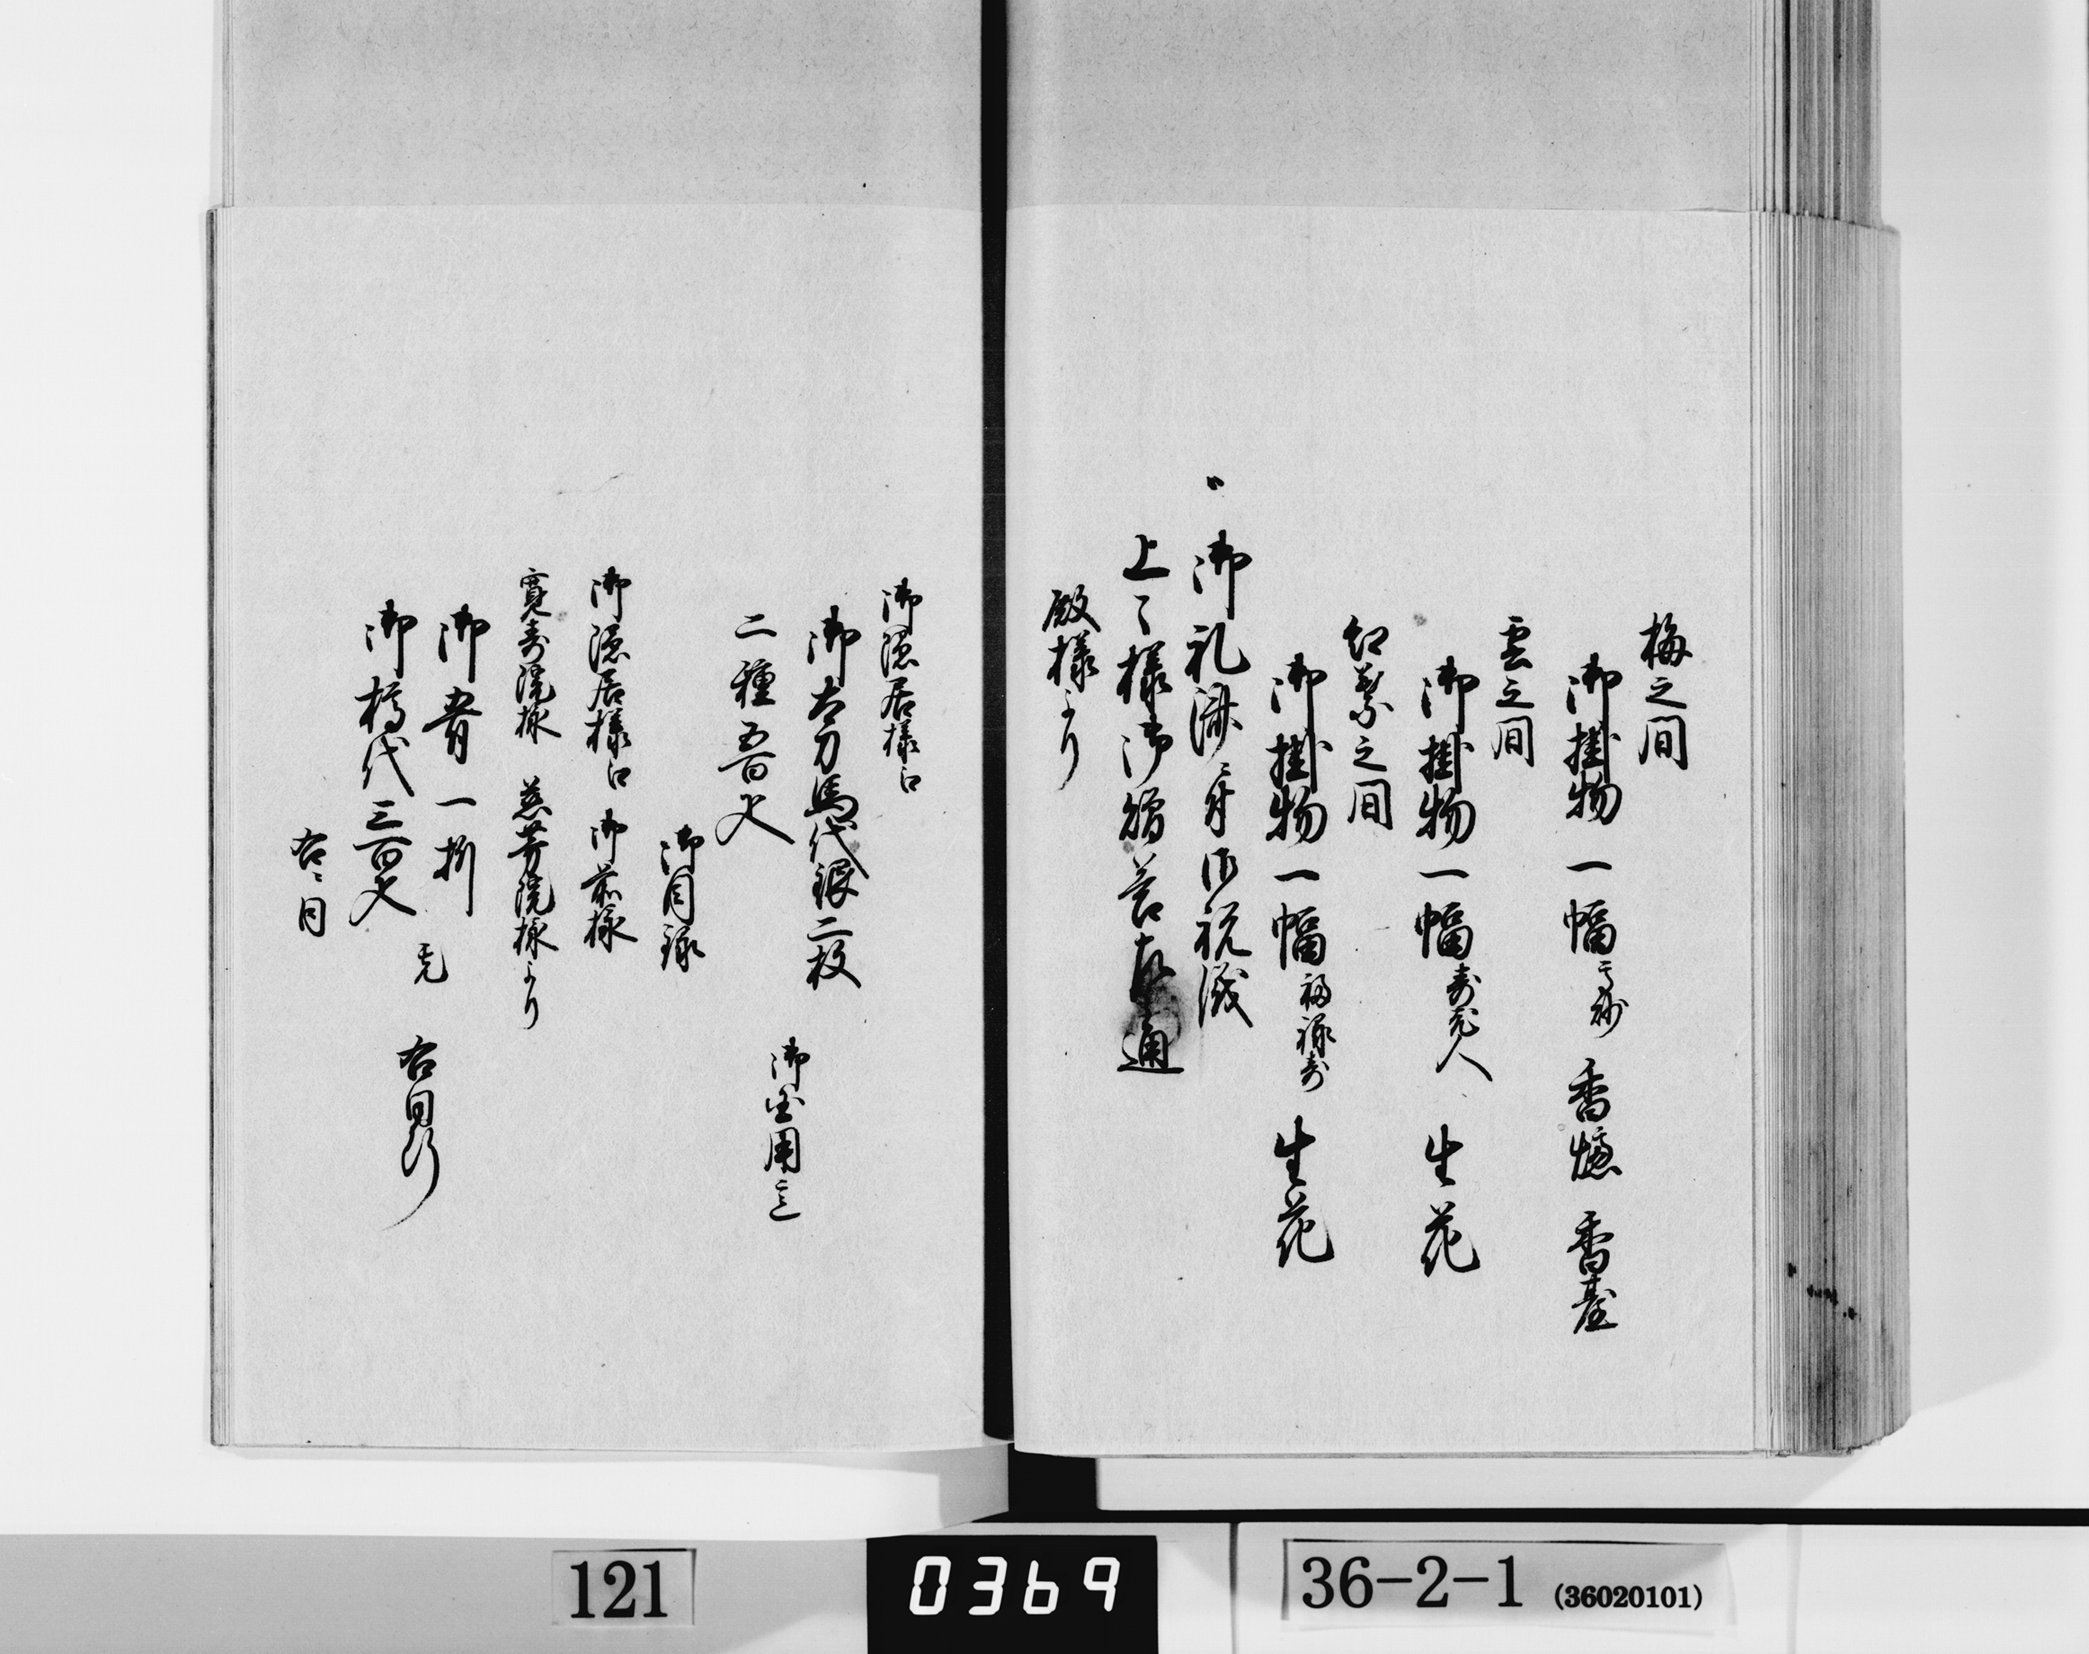 梅之間
御掛物一幅 香爐 香臺
雲之間
御掛物一幅 寿老人 生花
紅葉之間
御掛物一幅 福禄寿 生花
一 御礼済ニ付御祝儀
上々様御贈答左之通
殿様より
御隠居様江
御太刀馬代銀二枚
二種五百疋
御目録
御隠居様江 御前様
寛寿院様 慈芳院様より
御肴一折
御樽代三百疋
右同断
右ニ同
121
0369
36-2-1 (36020101)